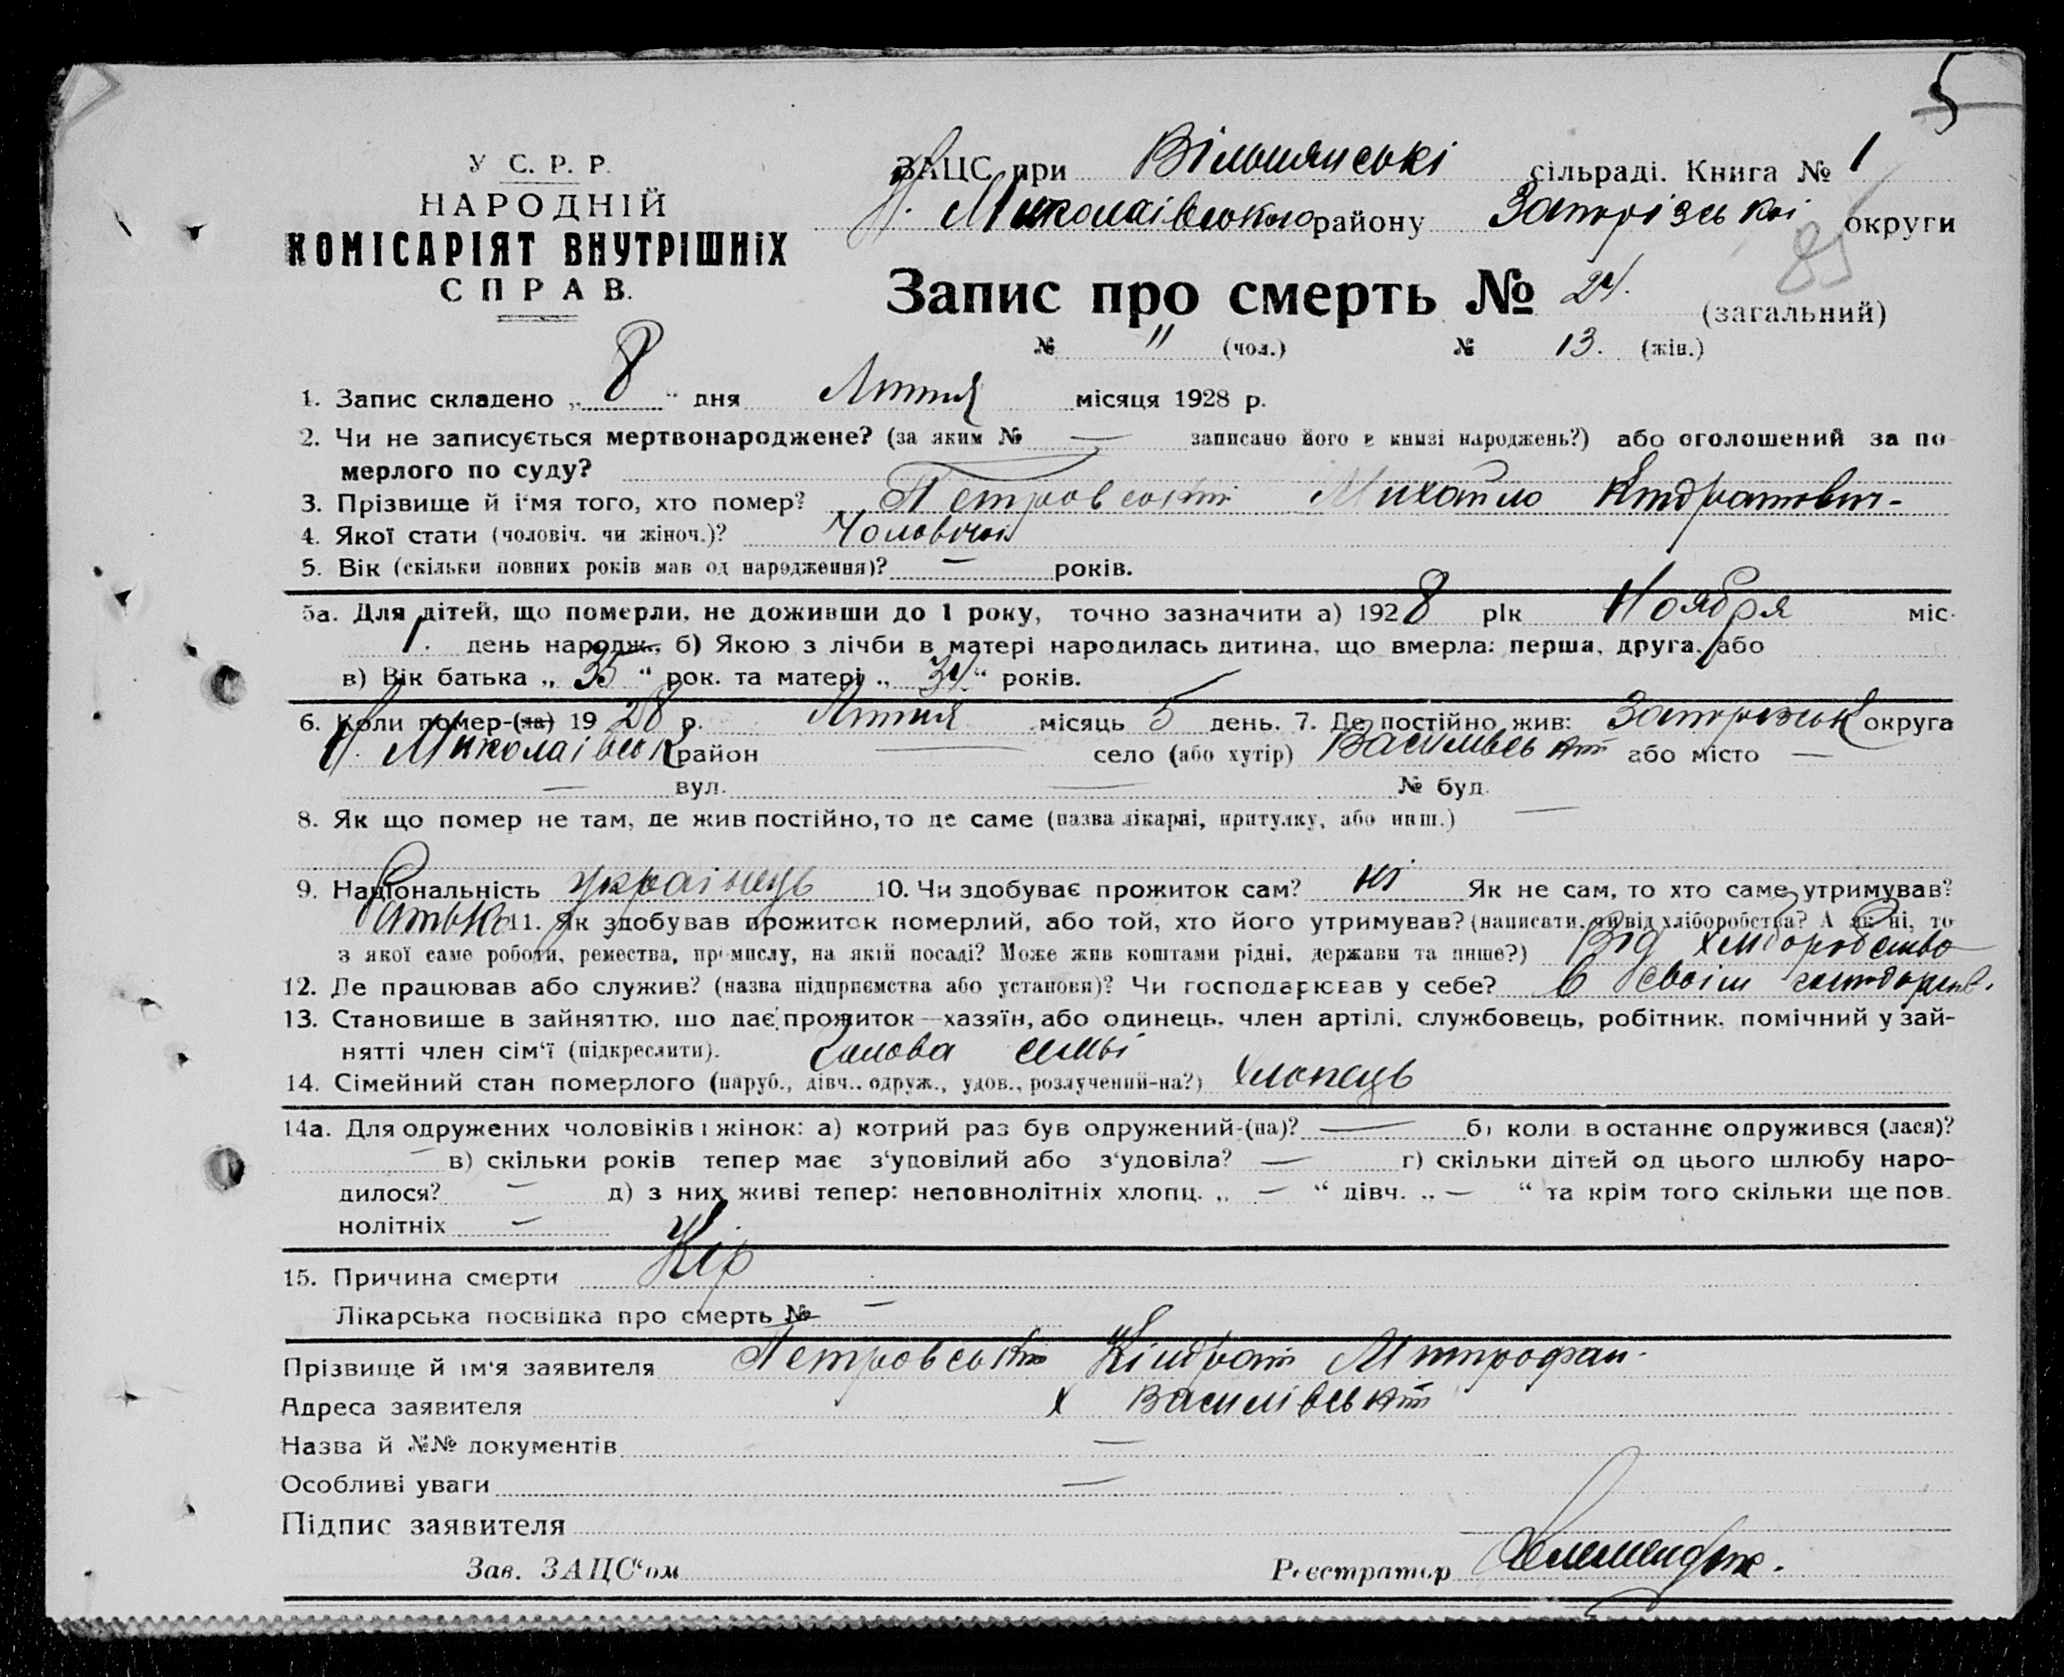 5
У С. Р. Р.
НАРОДНІЙ
КОМІСАРІЯТ ВНУТРІШНІХ
СПРАВ.
ЗАЦС при Вільшянські сільраді. Книга № 1
Н. Миколаівського району Запорізькоі округи
85
Запис про смерть № 24. (загальний)
№ 11 (чол.) № 13. (жін.)
1. Запис складено „ 8 “ дня Липня місяця 1928 р.
2. Чи не записується мертвонароджене? (за яким № — записано його в книзі народжень?) або оголошений за по
мерлого по суду?
3. Прізвище й і‘мя того, хто помер? Петровський Михайло Кіндратович-
4. Якої стати (чоловіч. чи жіноч.)? Чоловічоі
5. Вік (скільки повних років мав од народження)? — років.
5а. Для дітей, що померли, не доживши до 1 року, точно зазначити а) 1928 рік Ноября міс.
1. день народж., б) Якою з лічби в матері народилась дитина, що вмерла: перша, друга, або
в) Вік батька „ 35 “ рок. та матері „ 34 “ років.
6. Коли помер-(ла) 1928 р. Липня місяць 5 день. 7. Де постійно жив: Запорізськ округа
Н. Миколаівськ район — село (або хутір) Васильвський або місто —
— вул. — № буд.
8. Як що помер не там, де жив постійно, то де саме (назва лікарні, притулку, або инш.) —
9. Національність українець 10. Чи здобуває прожиток сам? ні Як не сам, то хто саме утримував?
Батько 11. Як здобував прожиток померлий, або той, хто його утримував? (написати, чи від хліборобства? А як ні, то
з якої саме роботи, ремества, промислу, на якій посаді? Може жив коштами рідні, держави та инше?) Від хліборобство
12. Де працював або служив? (назва підприємства або установи)? Чи господарював у себе? в своїм господарств.
13. Становище в зайняттю, що дає прожиток—хазяїн, або одинець, член артілі, службовець, робітник, помічний у зай-
нятті член сім‘ї (підкреслити). Голова семьі
14. Сімейний стан померлого (паруб., дівч., одруж., удов., розлучений-на?) хлопець
14а. Для одружених чоловіків і жінок: а) котрий раз був одружений-(на)? — б) коли в останнє одружився (лася)?
— в) скільки років тепер має з‘уповілий або з‘удовіла? — г) скільки дітей од цього шлюбу наро-
дилося? — д) з них живі тепер: неповнолітніх хлопц. „ — “ дівч. „ — “ та крім того скільки ще пов.
нолітніх —
15. Причина смерти Кір
Лікарська посвідка про смерть № —
Прізвище й ім‘я заявителя Петровський Кіндрат Митрофан.
Адреса заявителя х Василівський
Назва й №№ документів —
Особливі уваги —
Підпис заявителя
Зав. ЗАЦС‘ом Реєстратор